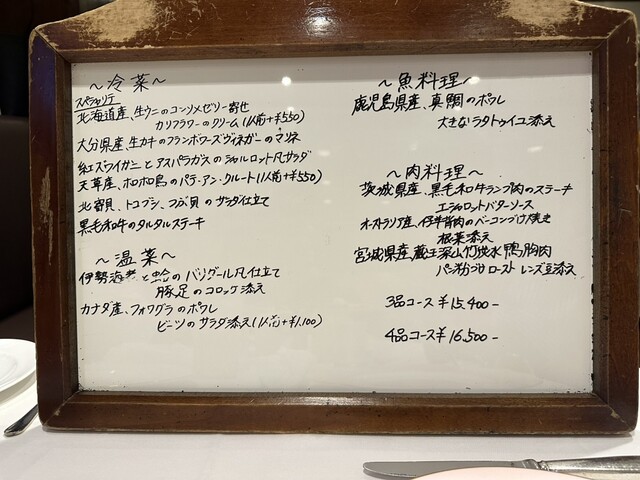 ～冷菜～
スペシャリテ
北海道産、生ウニのコーンソメゼリー寄せ
カリフラワーのクリーム(1人前+¥550)
大分県産、生カキのフランボワーズヴィネガーのマリネ
紅ズワイガニとアスパラガスのシャルロット風サラダ
天草産、ホロホロ鳥のパテ・アン・クルート(1人前+¥550)
北寄貝、トコブシ、つぶ貝のサラダ仕立て
黒毛和牛のタルタルステーキ
～温菜～
伊勢海老と蛤のバリグール風仕立て
豚足のコロッケ添え
カナダ産、フォワグラのポワレ
ビーツのサラダ添え(1人前+¥1.100)
～魚料理～
鹿児島県産、真鯛のポワレ
大きなラタトゥイユ添え
～肉料理～
茨城県産、黒毛和牛ランプ肉のステーキ
エシャロットバターソース
オーストラリア産、仔羊背肉のベーコンづけ焼き
根菜添え
宮城県産、蔵王深山竹炭水鴨胸肉
パン粉づけロースト レンズ豆添え
3品コース¥15.400-
4品コース¥16,500-